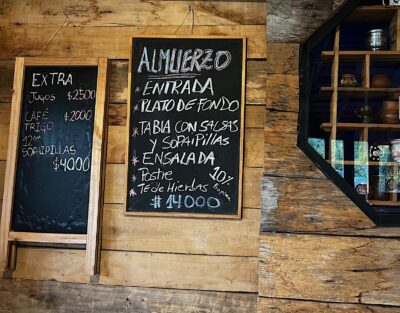 EXTRA
JUGOS $2500
CAFÉ $2000
TRIGO
SOPAIPILLAS
$4000
ALMUERZO
* ENTRADA
* PLATO DE FONDO
* TABLA CON SALSAS
Y SOPAIPILLAS
* ENSALADA
* Postre 10%
* Té de Hierbas Propina
$14000